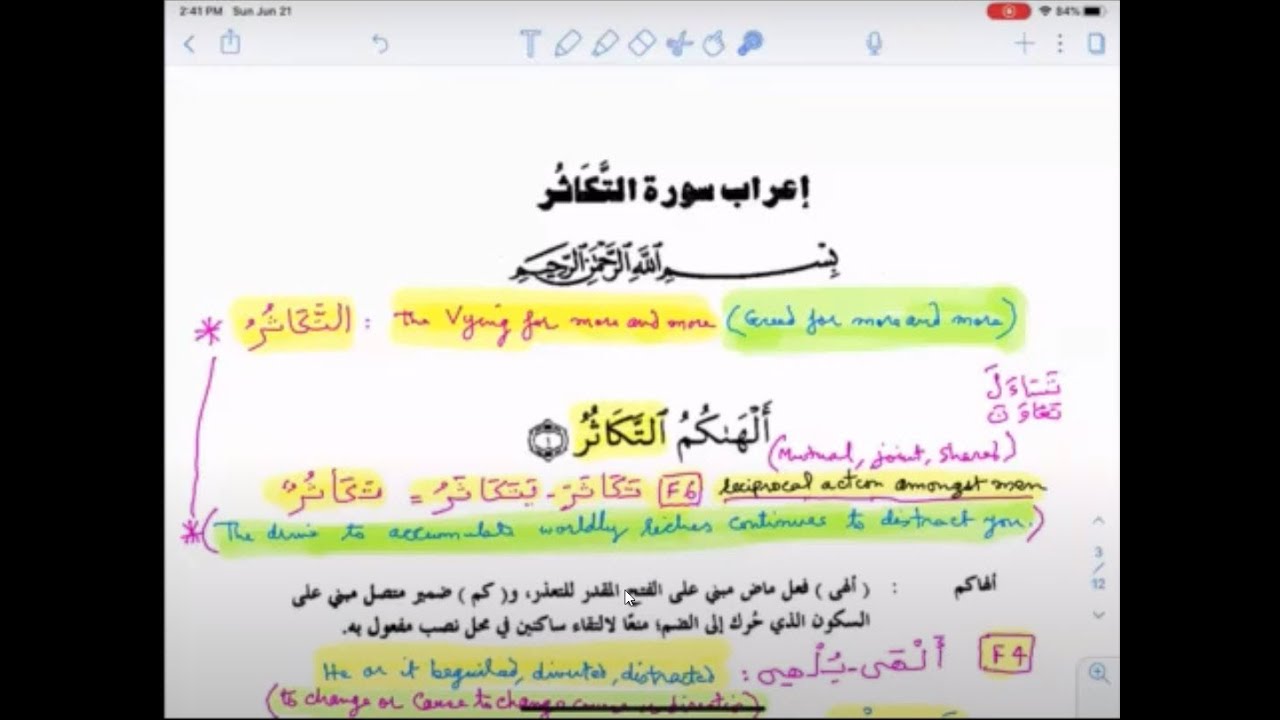 2:41 PM Sun Jun 21 84%
إعراب سورة التَّكَاثُر
بِسْمِ اللَّهِ الرَّحْمَٰنِ الرَّحِيمِ
* التَّكَاثُرُ : the Vying for more and more (Greed for more and more)
تَسَاءَلَ
تَعَاوَنَ
أَلْهَىٰكُمُ ٱلتَّكَاثُرُ ١
(Mutual, joint, shared)
تَكَاثَرَ - يَتَكَاثَرُ = تَكَاثُرٌ F6 reciprocal action amongst men
* (The drive to accumulate worldly riches continues to distract you.)
3
/
12
ألهاكم : (ألهى) فعل ماض مبني على الفتح المقدر للتعذر، و(كم) ضمير متصل مبني على
السكون الذي حُرك إلى الضم؛ منعًا لالتقاء ساكنين في محل نصب مفعول به.
F4 أَلْهَى - يُلْهِي : He or it beguiled, diverted, distracted
(to change or cause to change course or direction)